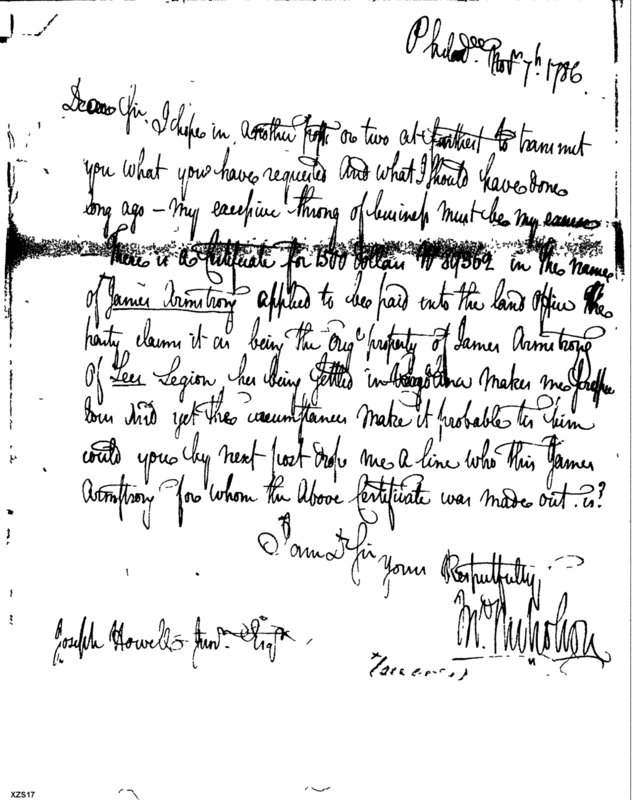 Philad. Novr. 7th. 1786.
Dear Sir,
I hope in another post or two at furthest to transmit
you what you have requested And what I Should have done
long ago – My excessive throng of business must be my excuse
– There is a Certificate for 1500 dollars No 89362 in the name
of James Armstrong applied to be paid into the land office The
party claims it as being the Orig property of James Armstrong
Of Lees Legion, his being Settled in makes me
And yet the circumstances make it probable tis him
could you by next post drop me a line who this James
Armstrong for whom the Above Certificate was made out is?
I am Dr Sir
Yours Respectfully
Nicholson
Joseph Howell Junr. Esqr
XZS17